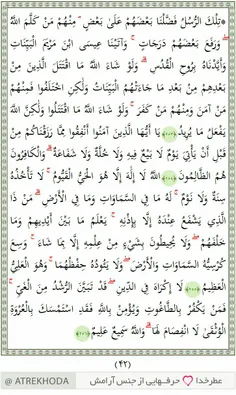 ﴿تِلْكَ الرُّسُلُ فَضَّلْنَا بَعْضَهُمْ عَلَىٰ بَعْضٍ ۘ مِنْهُمْ مَنْ كَلَّمَ اللَّهُ
ۖ وَرَفَعَ بَعْضَهُمْ دَرَجَاتٍ ۚ وَآتَيْنَا عِيسَى ابْنَ مَرْيَمَ الْبَيِّنَاتِ
وَأَيَّدْنَاهُ بِرُوحِ الْقُدُسِ ۗ وَلَوْ شَاءَ اللَّهُ مَا اقْتَتَلَ الَّذِينَ مِنْ
بَعْدِهِمْ مِنْ بَعْدِ مَا جَاءَتْهُمُ الْبَيِّنَاتُ وَلَٰكِنِ اخْتَلَفُوا فَمِنْهُمْ
مَنْ آمَنَ وَمِنْهُمْ مَنْ كَفَرَ ۚ وَلَوْ شَاءَ اللَّهُ مَا اقْتَتَلُوا وَلَٰكِنَّ اللَّهَ
يَفْعَلُ مَا يُرِيدُ يَا أَيُّهَا الَّذِينَ آمَنُوا أَنْفِقُوا مِمَّا رَزَقْنَاكُمْ مِنْ
قَبْلِ أَنْ يَأْتِيَ يَوْمٌ لَا بَيْعٌ فِيهِ وَلَا خُلَّةٌ وَلَا شَفَاعَةٌ ۗ وَالْكَافِرُونَ
هُمُ الظَّالِمُونَ اللَّهُ لَا إِلَٰهَ إِلَّا هُوَ الْحَيُّ الْقَيُّومُ ۚ لَا تَأْخُذُهُ
سِنَةٌ وَلَا نَوْمٌ ۚ لَهُ مَا فِي السَّمَاوَاتِ وَمَا فِي الْأَرْضِ ۗ مَنْ ذَا
الَّذِي يَشْفَعُ عِنْدَهُ إِلَّا بِإِذْنِهِ ۚ يَعْلَمُ مَا بَيْنَ أَيْدِيهِمْ وَمَا
خَلْفَهُمْ ۖ وَلَا يُحِيطُونَ بِشَيْءٍ مِنْ عِلْمِهِ إِلَّا بِمَا شَاءَ ۚ وَسِعَ
كُرْسِيُّهُ السَّمَاوَاتِ وَالْأَرْضَ ۖ وَلَا يَئُودُهُ حِفْظُهُمَا ۚ وَهُوَ الْعَلِيُّ
الْعَظِيمُ لَا إِكْرَاهَ فِي الدِّينِ ۖ قَدْ تَبَيَّنَ الرُّشْدُ مِنَ الْغَيِّ ۚ
فَمَنْ يَكْفُرْ بِالطَّاغُوتِ وَيُؤْمِنْ بِاللَّهِ فَقَدِ اسْتَمْسَكَ بِالْعُرْوَةِ
الْوُثْقَىٰ لَا انْفِصَامَ لَهَا ۗ وَاللَّهُ سَمِيعٌ عَلِيمٌ
(۴۲)
عطرخدا حرفهایی از جنس آرامش @ ATREKHODA